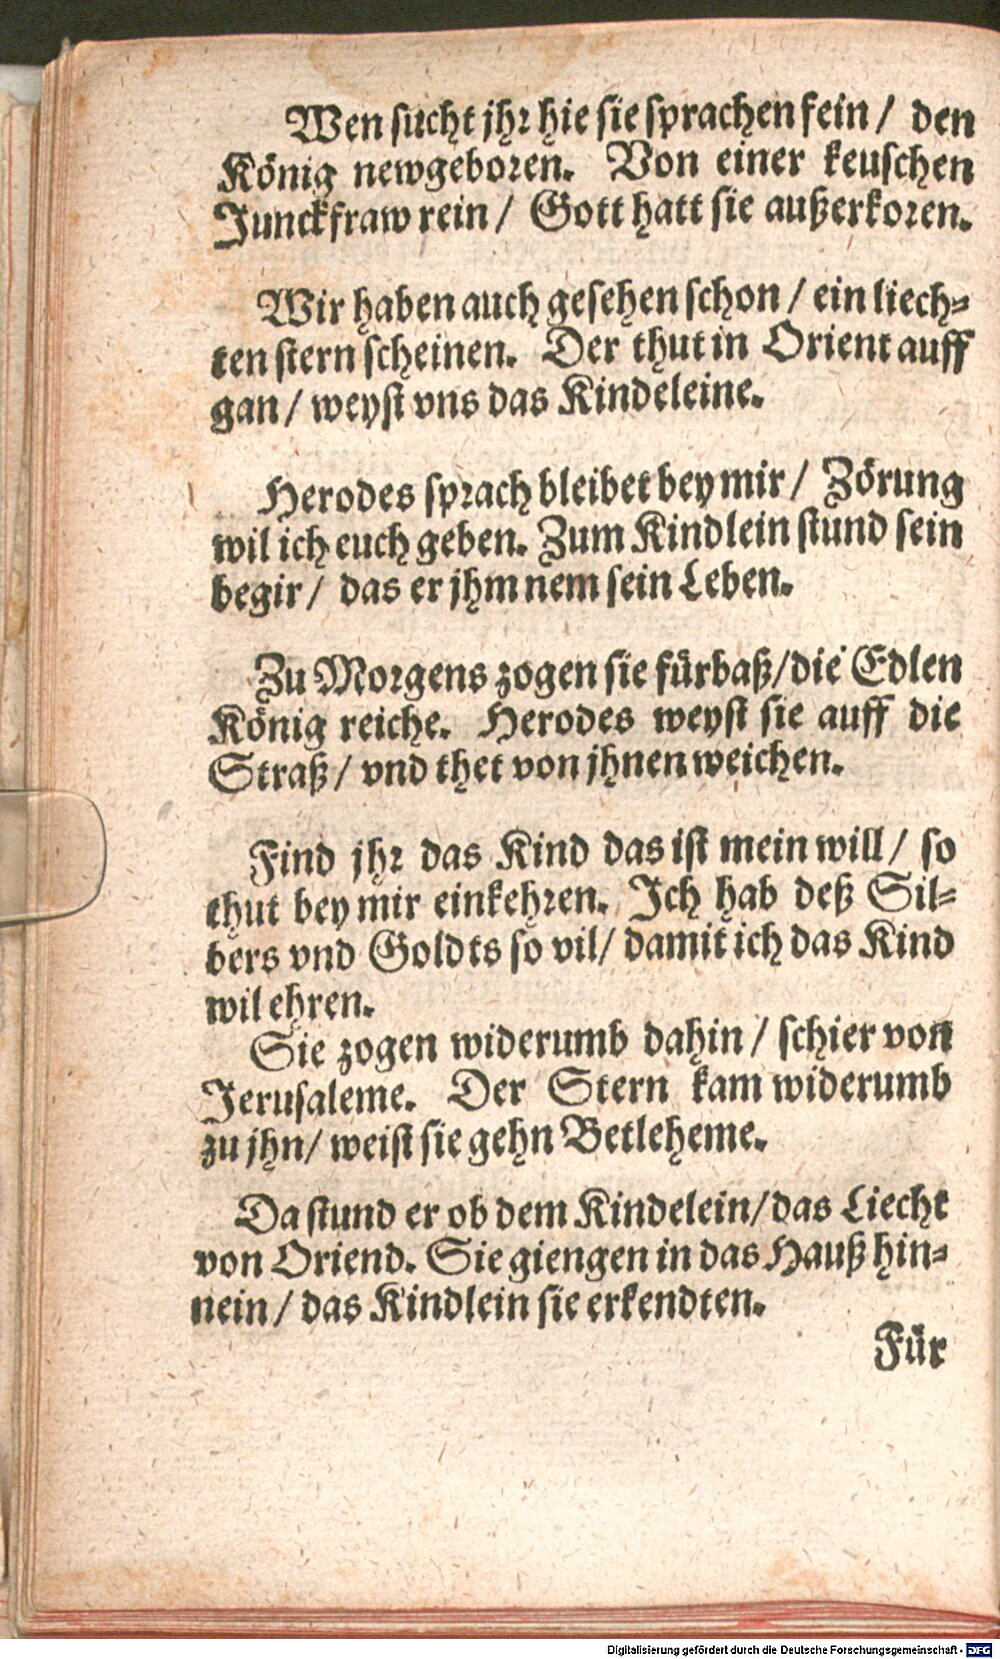 Wen sucht jhr hie sie sprachen fein / den
König newgeboren. Von einer keuschen
Junckfraw rein / Gott hatt sie außerkoren.
Wir haben auch gesehen schon / ein liech-
ten stern scheinen. Der thut in Orient auff
gan / weyst vns das Kindeleine.
Herodes sprach bleibet bey mir / Zörung
wil ich euch geben. Zum Kindlein stund sein
begir / das er jhm nem sein Leben.
Zu Morgens zogen sie fürbaß/die Edlen
König reiche. Herodes weyst sie auff die
Straß / vnd thet von jhnen weichen.
Find jhr das Kind das ist mein will / so
thut bey mir einkehren. Ich hab deß Sil-
bers vnd Goldts so vil/ damit ich das Kind
wil ehren.
Sie zogen widerumb dahin / schier von
Jerusaleme. Der Stern kam widerumb
zu jhn/ weist sie gehn Betleheme.
Da stund er ob dem Kindelein/das Liecht
von Oriend. Sie giengen in das Hauß hin-
nein / das Kindlein sie erkendten.
Für
Digitalisierung gefördert durch die Deutsche Forschungsgemeinschaft - DFG